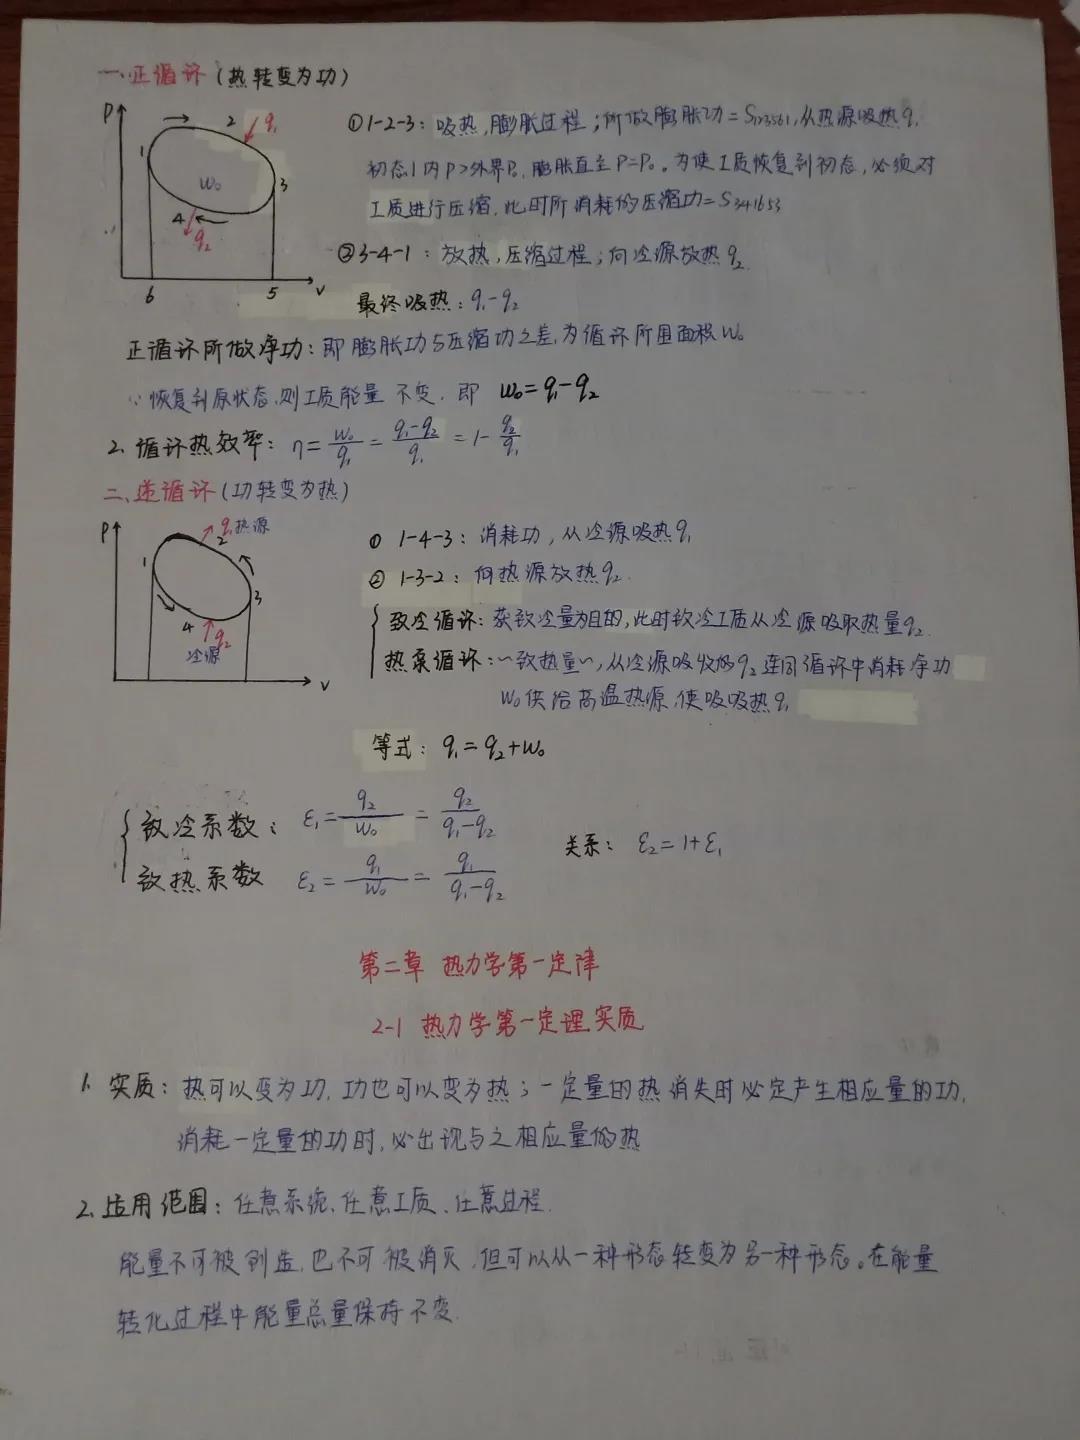 一.正循环(热转变为功)
P
2
q₁
1
W₀
3
4
q₂
6
5
v
①1-2-3:吸热,膨胀过程;所做膨胀功=S₁₂₃₅₆₁,从热源吸热q₁
初态1内P>外界P₀,膨胀直至P=P₀。为使工质恢复到初态,必须对
工质进行压缩,此时所消耗的压缩功=S₃₄₁₆₅₃
②3-4-1:放热,压缩过程;向冷源放热q₂
最终吸热:q₁-q₂
正循环所做净功:即膨胀功与压缩功之差,为循环所围面积W₀
∵恢复到原状态,则工质能量不变,即 W₀=q₁-q₂
2.循环热效率:η=W₀/q₁=(q₁-q₂)/q₁=1-q₂/q₁
二、逆循环(功转变为热)
P
q₁热源
2
1
3
4
q₂
冷源
v
① 1-4-3:消耗功,从冷源吸热q₁
② 1-3-2:向热源放热q₂.
致冷循环:获致冷量为目的,此时致冷工质从冷源吸取热量q₂.
热泵循环:~致热量~,从冷源吸收的q₂连同循环中消耗净功
W₀供给高温热源,使吸吸热q₁
等式:q₁=q₂+W₀
致冷系数:ε₁=q₂/W₀=q₂/(q₁-q₂)
致热系数 ε₂=q₁/W₀=q₁/(q₁-q₂)
关系:ε₂=1+ε₁
第二章 热力学第一定律
2-1 热力学第一定理实质
1.实质:热可以变为功,功也可以变为热;一定量的热消失时必定产生相应量的功,
消耗一定量的功时,必出现与之相应量的热
2.适用范围:任意系统、任意工质、任意过程.
能量不可被创造,也不可被消灭,但可以从一种形态转变为另一种形态。在能量
转化过程中能量总量保持不变.